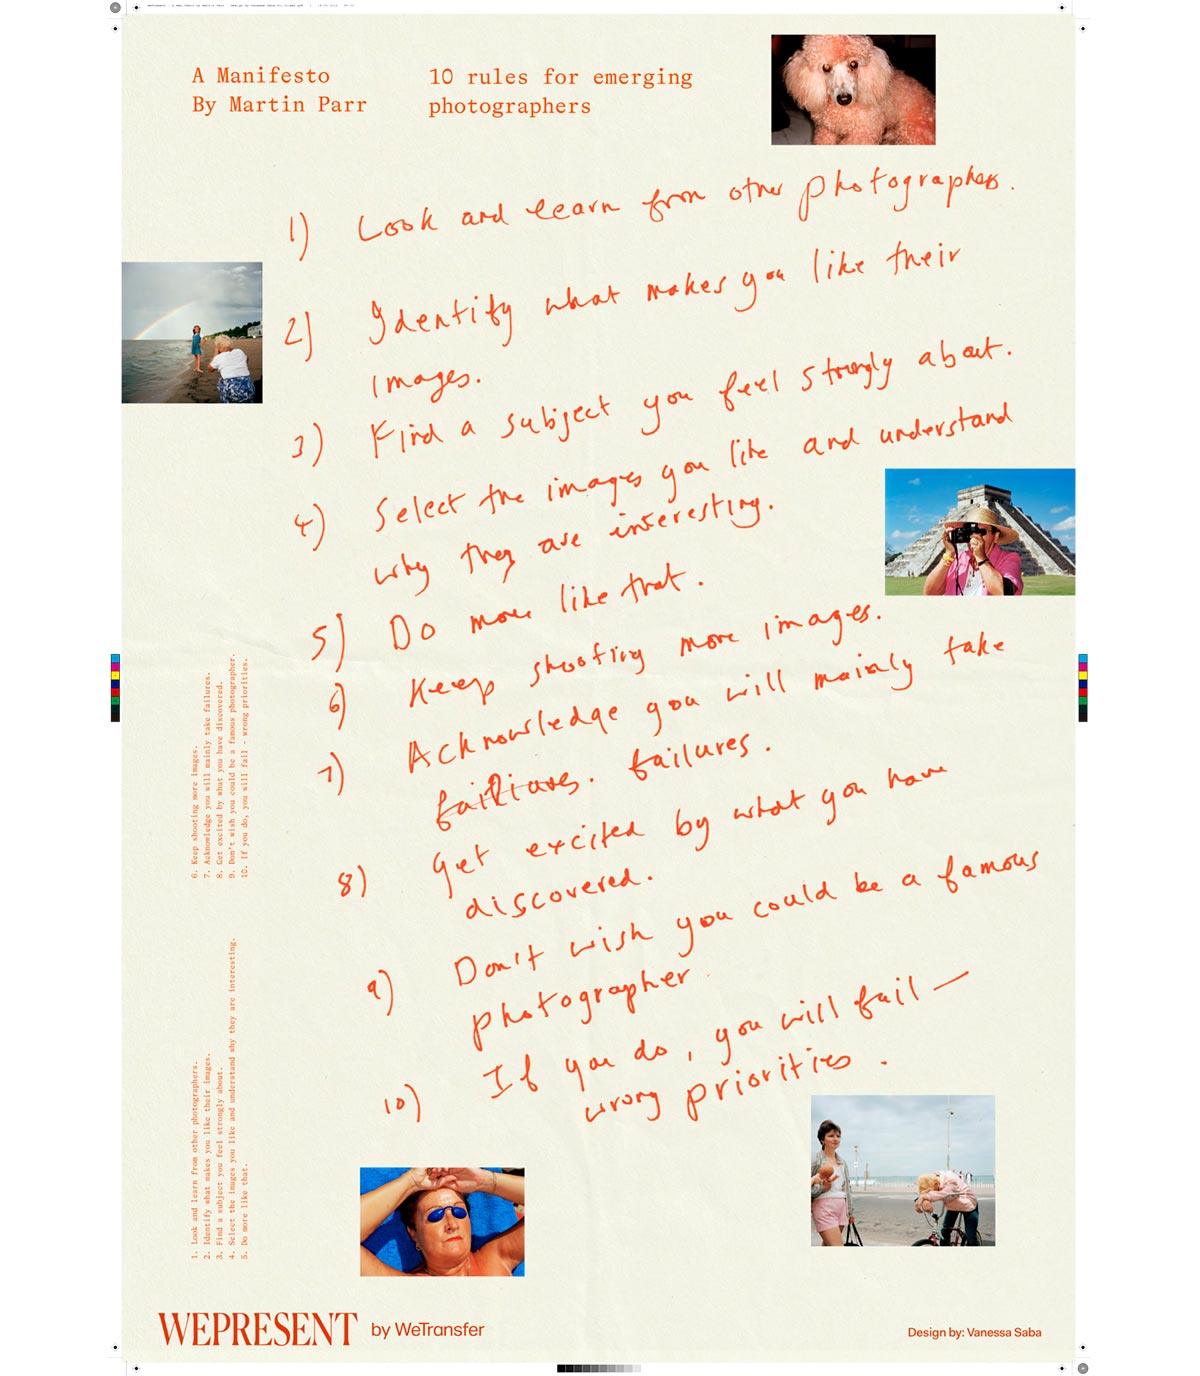 A Manifesto
By Martin Parr
10 rules for emerging
photographers
1) Look and learn from other photographers.
2) Identify what makes you like their
images.
3) Find a subject you feel strongly about.
4) Select the images you like and understand
why they are interesting.
5) Do more like that.
6) Keep shooting more images.
7) Acknowledge you will mainly take
failures.
8) Get excited by what you have
discovered.
9) Don't wish you could be a famous
photographer.
10) If you do, you will fail –
wrong priorities.
1. Look and learn from other photographers.
2. Identify what makes you like their images.
3. Find a subject you feel strongly about.
4. Select the images you like and understand why they are interesting.
5. Do more like that.
6. Keep shooting more images.
7. Acknowledge you will mainly take failures.
8. Get excited by what you have discovered.
9. Don't wish you could be a famous photographer.
10. If you do, you will fail - wrong priorities.
WEPRESENT by WeTransfer
Design by: Vanessa Saba